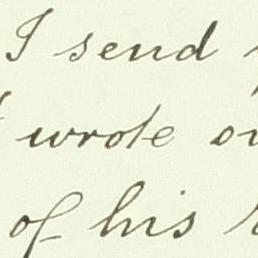 I send
wrote
of his